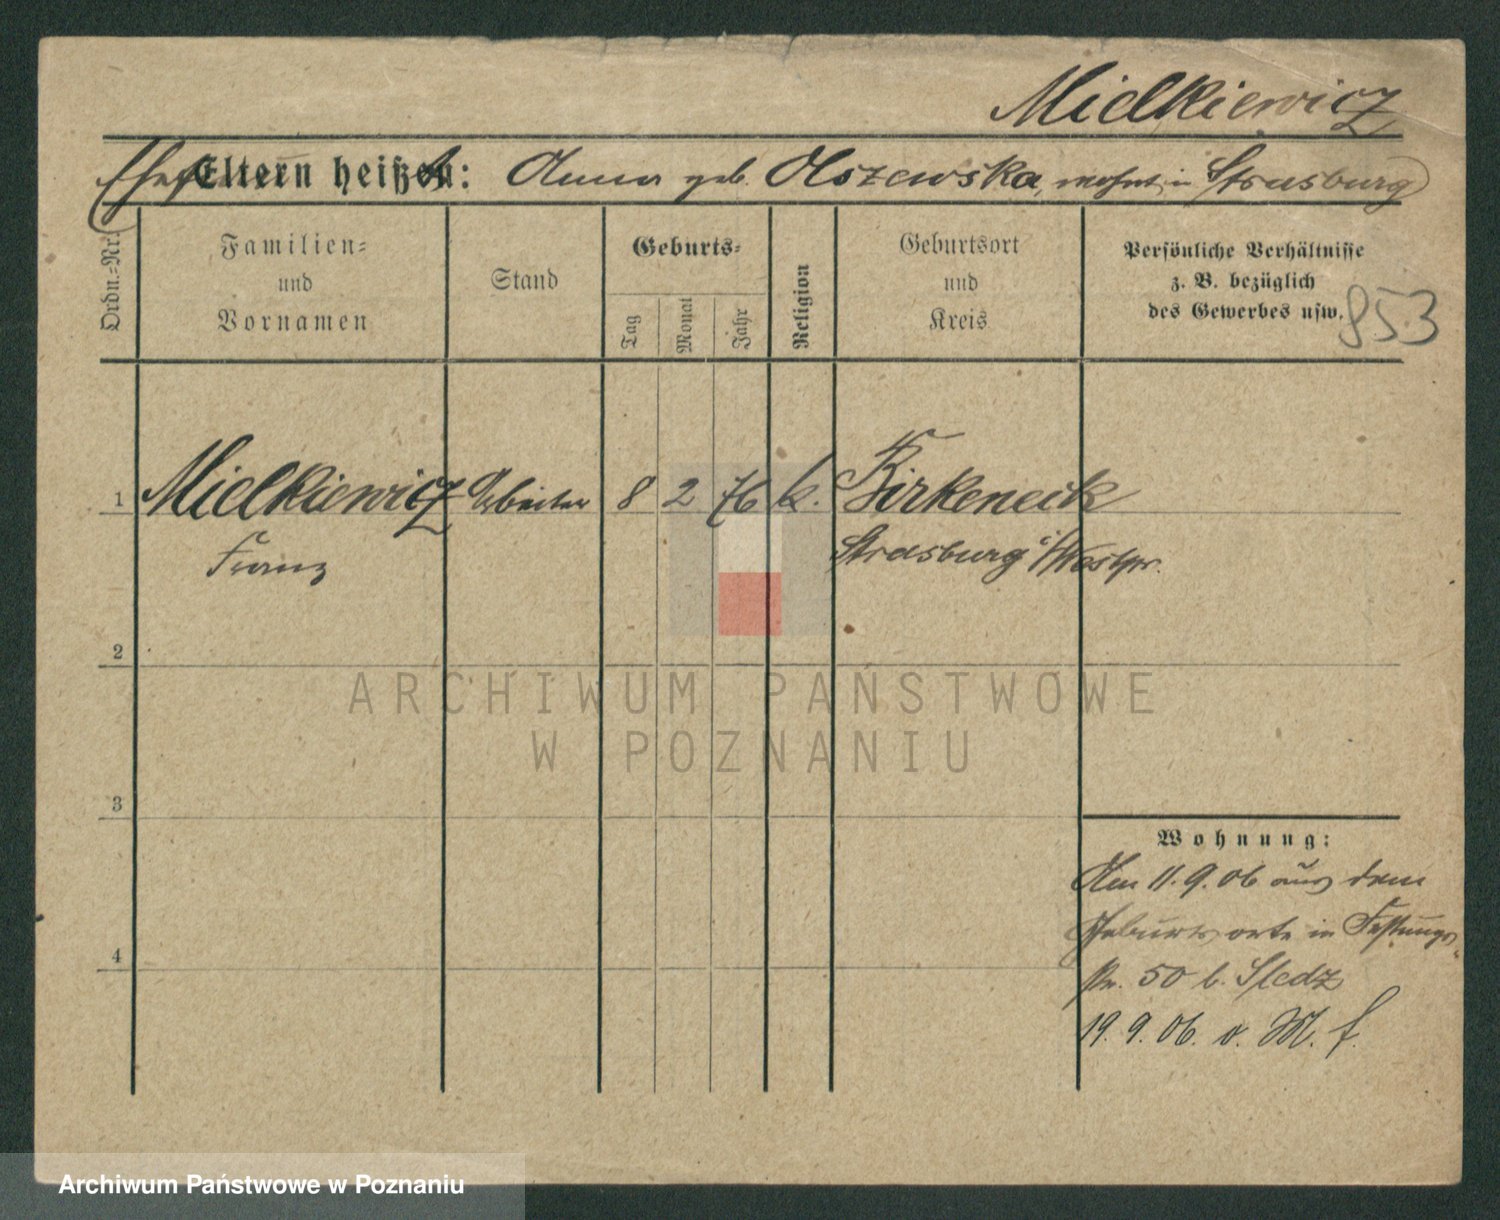 Mielkiewicz
Ehefr. Eltern heißen: Anna geb. Olszewska, wohnt in Strasburg
Ordn.=Nr.
Familien=
und
Vornamen
Stand
Geburts=
Tag
Monat
Jahr
Religion
Geburtsort
und
Kreis
Persönliche Verhältnisse
z. B. bezüglich
des Gewerbes usw.
853
1 Mielkiewicz Arbeiter 8 2 76 k. Birkeneck
Franz Strasburg i/Westpr.
2
ARCHIWUM PAŃSTWOWE
W POZNANIU
3
Wohnung:
Am 11.9.06 aus dem
Geburtsorte in Festungs=
str. 50 b. Sledz
19.9.06. v. M. f.
4
Archiwum Państwowe w Poznaniu